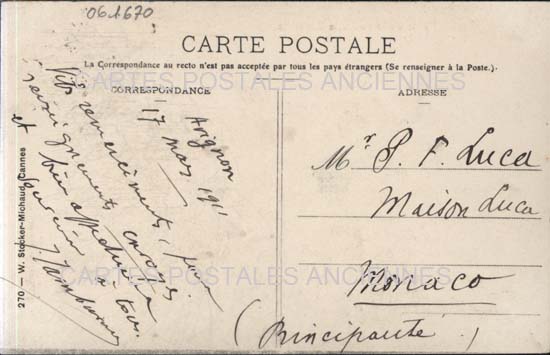 061670
CARTE POSTALE
La Correspondance au recto n'est pas acceptée par tous les pays étrangers (Se renseigner à la Poste.)
CARTES POSTALES ANCIENNES
CORRESPONDANCE
ADRESSE
Avignon
17 mars 191
Vifs remerciements, pour
renseignements
et bien
à tous
Mr P. F. Luca
Maison Luca
Monaco
(Principauté)
CARTES POSTALES ANCIENNES
270 — W. Stocker-Michaud, Cannes